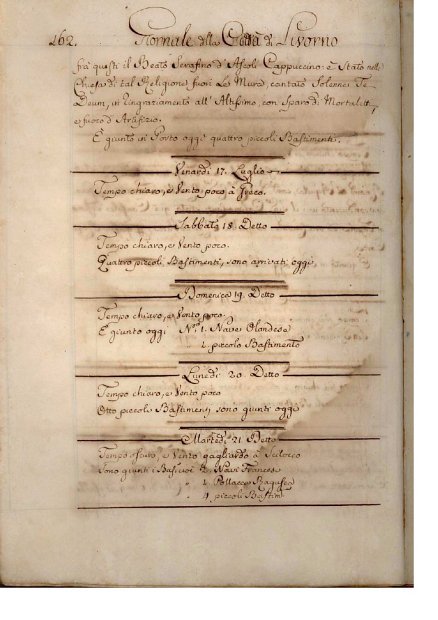 162. Giornale della Città di Livorno
frà questi il Beato Serafino d'Ascoli Cappuccino: è Stato nella
Chiesa di tal Religione, fuori Le Mura, cantato Solenne Te
Deum, in ringraziamento all'Altissimo, con Sparo di Mortaletti,
e fuoco d'Artifizio.
È giunto in Porto oggi quattro piccoli Bastimenti.
Venardi 17. Luglio
Tempo chiaro, e Vento poco à Greco.
Sabbato 18. Detto
Tempo chiaro, e Vento poco.
Quattro piccoli Bastimenti, sono arrivati oggi
Domenica 19. Detto
Tempo chiaro, e Vento poco
È giunto oggi N.º 1. Nave Olandese
1. piccolo Bastimento
Lunedì 20. Detto
Tempo chiaro, e Vento poco
Otto piccoli Bastimenti, sono giunti oggi
Martedì 21. Detto
Tempo oscuro, e Vento gagliardo à Scilocco
Sono giunti i 2. Navi Francese
1. Pollacca Ragusea
4. piccoli Bastim